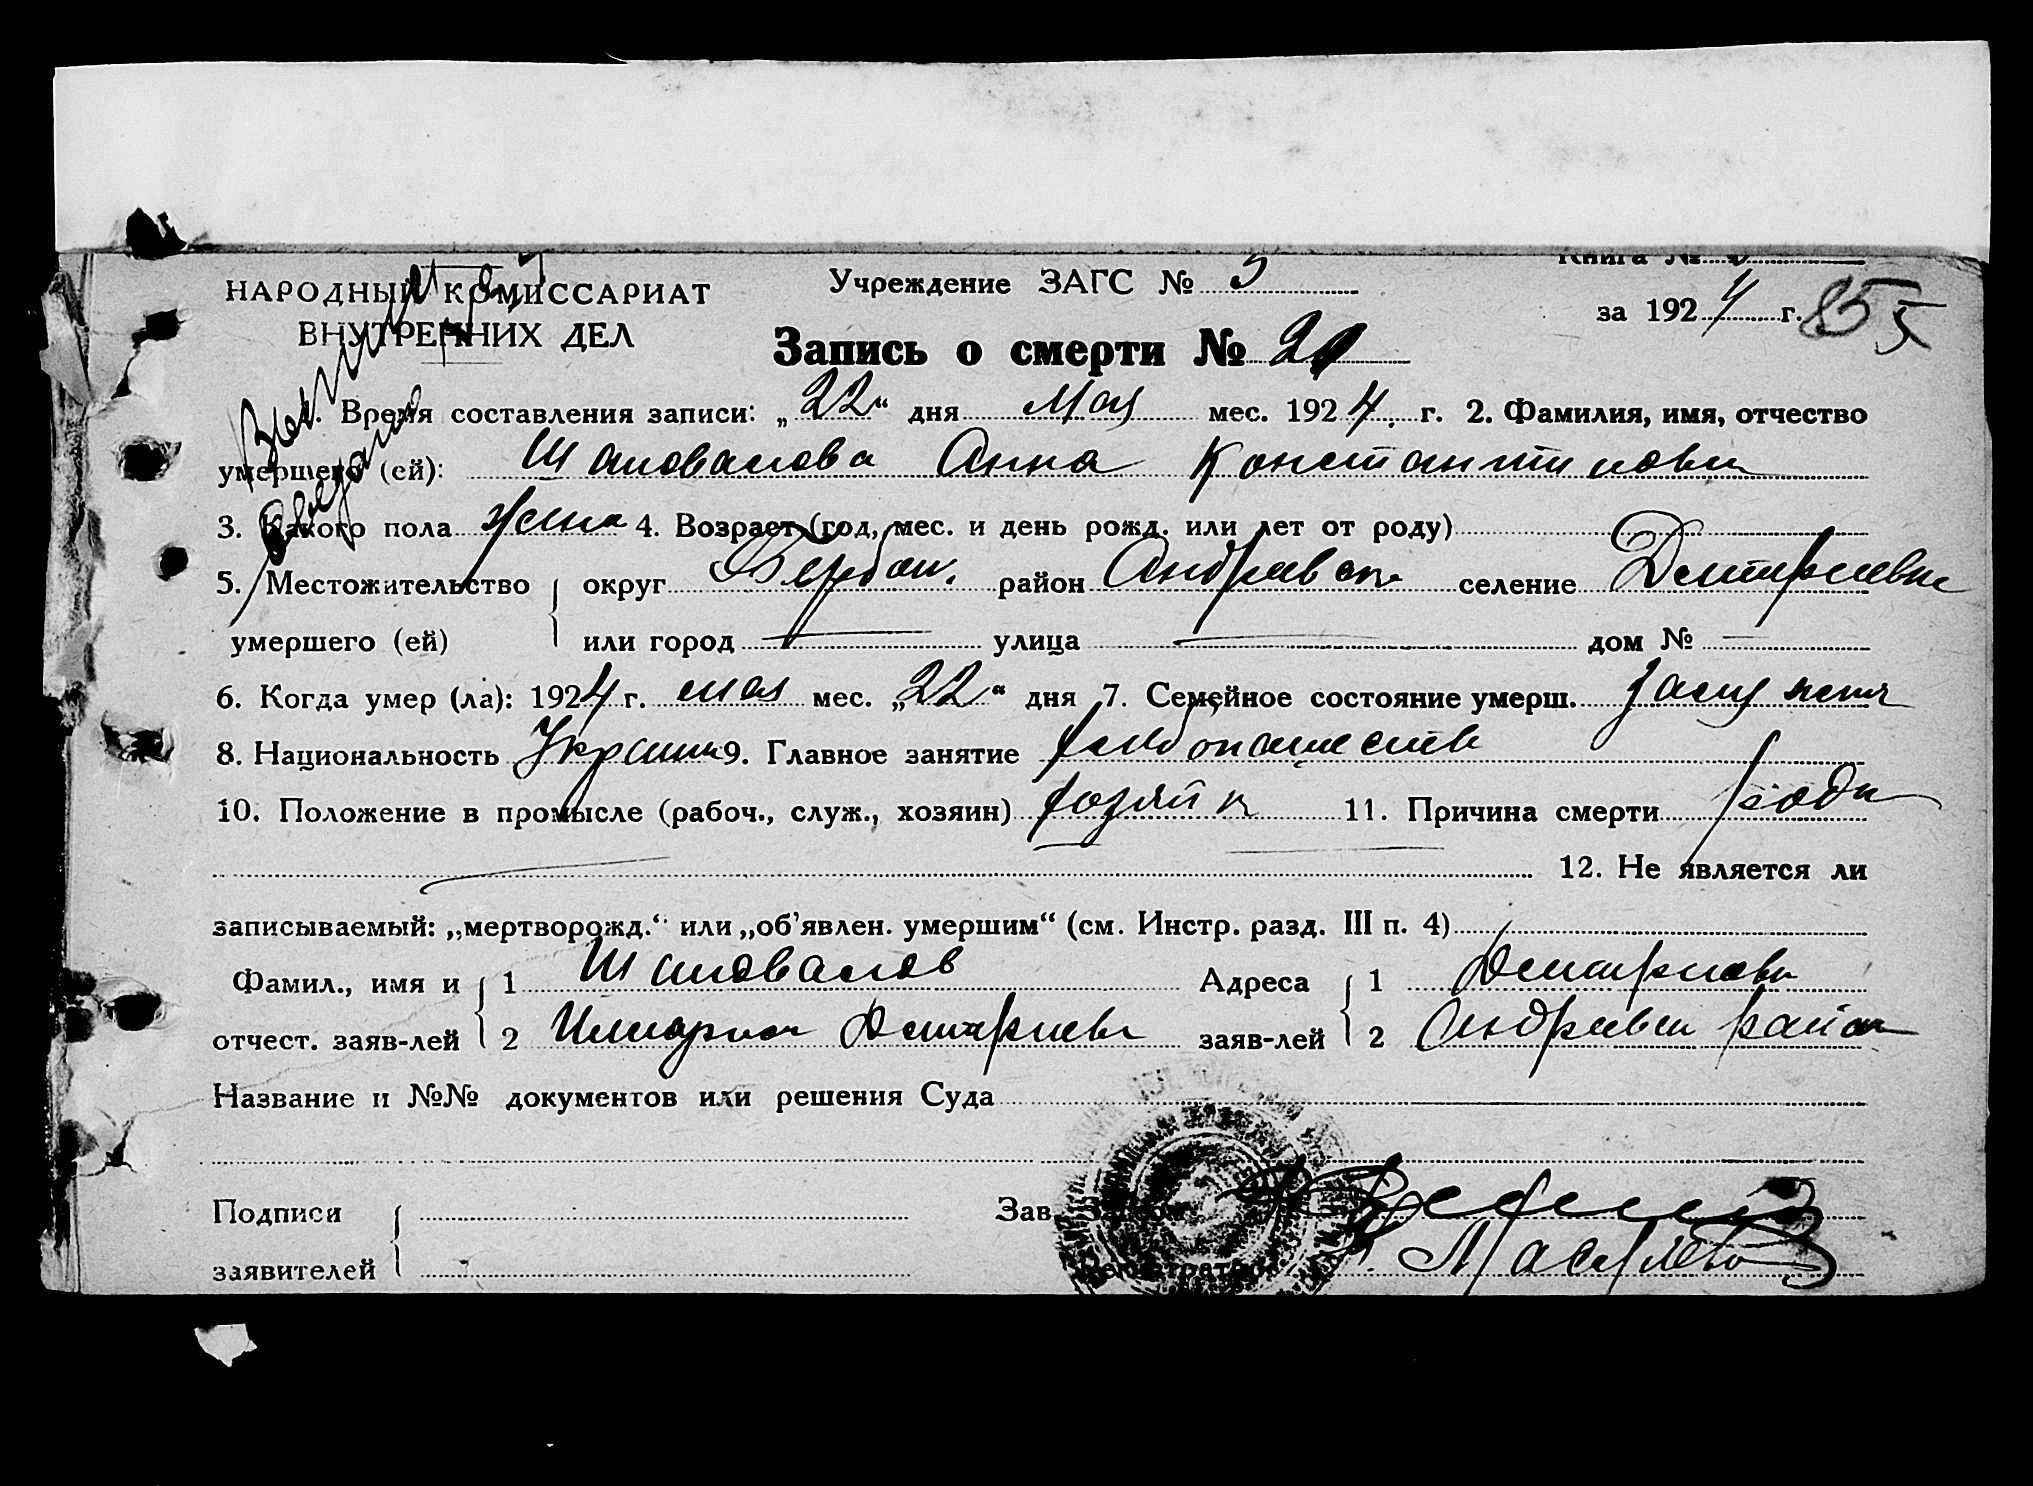 Книга №
НАРОДНЫЙ КОМИССАРИАТ
ВНУТРЕННИХ ДЕЛ
Учреждение ЗАГС № 3
за 1924 г. 85
Запись о смерти №
1. Время составления записи: „22“ дня мая мес. 1924. г. 2. Фамилия, имя, отчество
умершего (ей): Шаповалова Анна Константиновн
3. Какого пола жена 4. Возраст (год, мес. и день рожд. или лет от роду)
5. Местожительство умершего (ей) { округ Бердян. район Андреевск селение Дмитриевка
или город — улица — дом № —
6. Когда умер (ла): 1924 г. мая мес. „22“ дня 7. Семейное состояние умерш. замужняя
8. Национальность Украин 9. Главное занятие хлебопашество
10. Положение в промысле (рабоч., служ., хозяин) хозяйк 11. Причина смерти роды
12. Не является ли
записываемый: „мертворожд.“ или „об'явлен. умершим“ (см. Инстр. разд. III п. 4)
Фамил., имя и отчест. заяв-лей { 1 Шаповалов
Адреса заяв-лей { 1 Дмитриевк
2 Дмитриев
2 Андреевск район
Название и №№ документов или решения Суда
Подписи заявителей {
Зав.